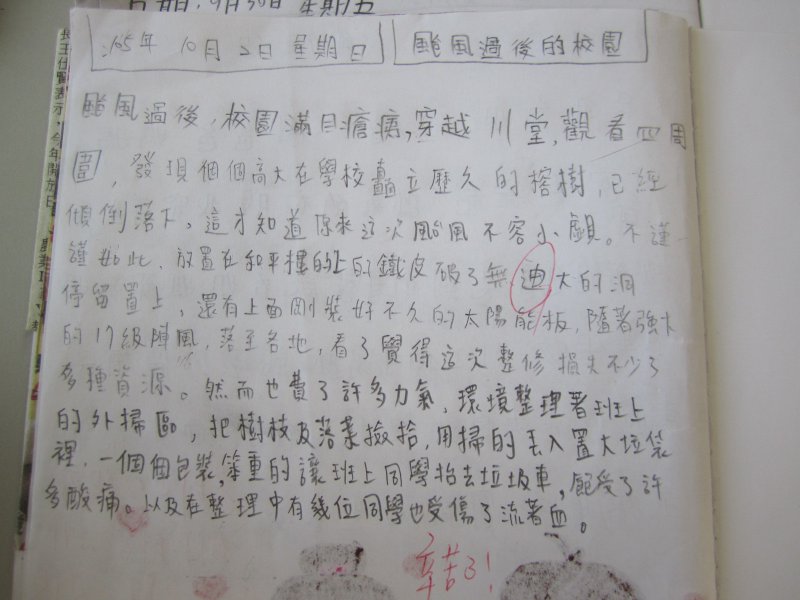 日期:9月30日 星期五
105年 10月2日 星期日 颱風過後的校園
颱風過後,校園滿目瘡痍,穿越川堂,觀看四周
圍,發現個個高大在學校矗立歷久的榕樹,已經
傾倒落下。這才知道原來這次颱風不容小覷。不謹
謹如此,放置在和平樓的上的鐵皮破了無迪大的洞
停留置上,還有上面剛裝好不久的太陽能板,隨著強大
的17級陣風,落至各地,看了覺得這次整修損失不少了
多種資源。然而也費了許多力氣,環境整理著班上
的外掃區,把樹枝及落葉撿拾,用掃的丟入置大垃袋
裡,一個個包裝,笨重的讓班上同學抬去垃圾車,飽受了許
多酸痛。以及在整理中有幾位同學也受傷了流著血。
辛苦了!